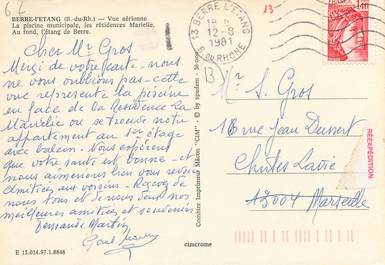 67
BERRE-L'ETANG (B.-du-Rh.) — Vue aérienne
La piscine municipale, les résidences Marielle,
Au fond, l'étang de Berre.
Cher Mr Gros
Merci de votre carte - nous
ne vous oublions pas - cette
vue représente la piscine
en face de la Résidence
La Marielie ou se trouve notre
appartement au 1er étage
avec balcon - Nous espérons
que votre santé est bonne - et
nous aimerions bien vous
amitiés aux voisins - Recevez de
nous tous et de nous deux nos
meilleures amitiés et souvenirs
Fernande Martin
E 13.014.97.1.8848
cimcrome
Combier Imprimeur Mâcon "CIM" - © by spadem -
13
13 BERRE L'ETANG
12-8
1981
B. DU RHONE
1,40
Mr S. Gros
18 rue Jean
13004 Marseille
RÉEXPÉDITION